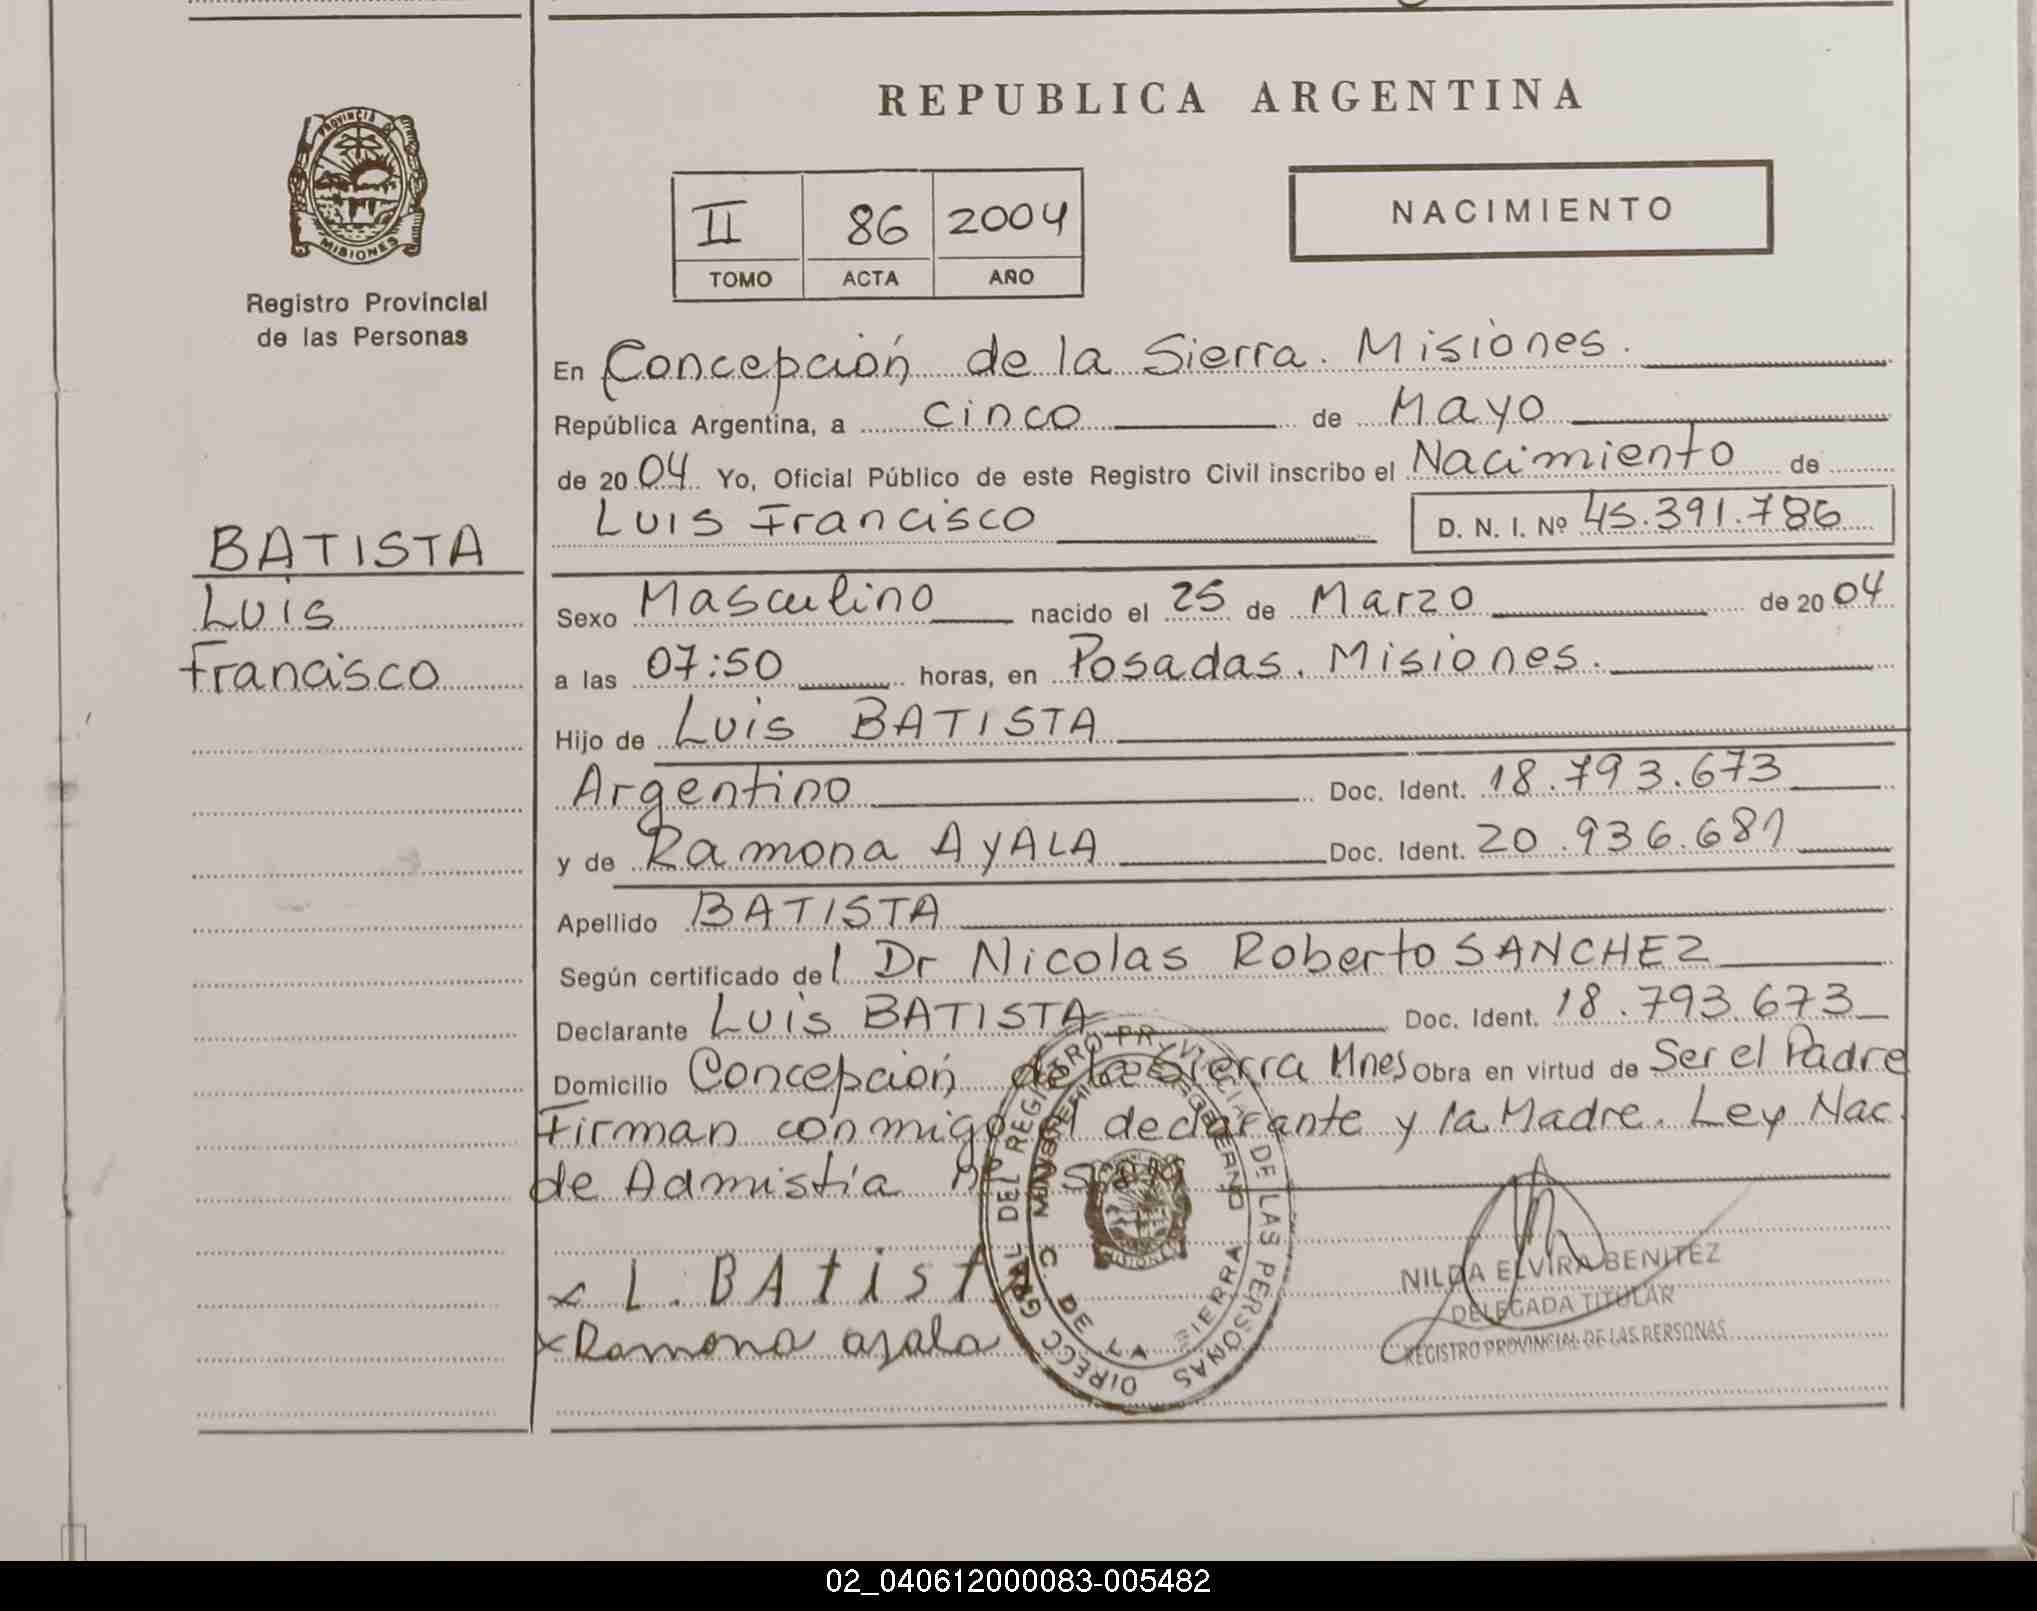 REPUBLICA ARGENTINA
PROVINCIA DE
MISIONES
Registro Provincial
de las Personas
II 86 2004
TOMO ACTA AÑO
NACIMIENTO
En Concepción de la Sierra. Misiones.
República Argentina, a cinco de Mayo
de 2004 Yo, Oficial Público de este Registro Civil inscribo el Nacimiento de
Luis Francisco D. N. I. Nº 45.391.786
BATISTA
Luis
Francisco
Sexo Masculino nacido el 25 de Marzo de 2004
a las 07:50 horas, en Posadas. Misiones.
Hijo de Luis BATISTA
Argentino Doc. Ident. 18.793.673
y de Ramona AyALA Doc. Ident. 20.936.681
Apellido BATISTA
Según certificado del Dr Nicolas Roberto SANCHEZ
Declarante Luis BATISTA Doc. Ident. 18.793.673
Domicilio Concepción de la Sierra Mnes Obra en virtud de Ser el Padre
Firman conmigo el declarante y la Madre. Ley Nac.
de Admistía
x L. BAtista
x Ramona ayala
DIRECC. GRAL. DEL REGISTRO PROVINCIAL DE LAS PERSONAS
C. DE LA SIERRA
NILDA ELVIRA BENITEZ
DELEGADA TITULAR
REGISTRO PROVINCIAL DE LAS PERSONAS
02_040612000083-005482